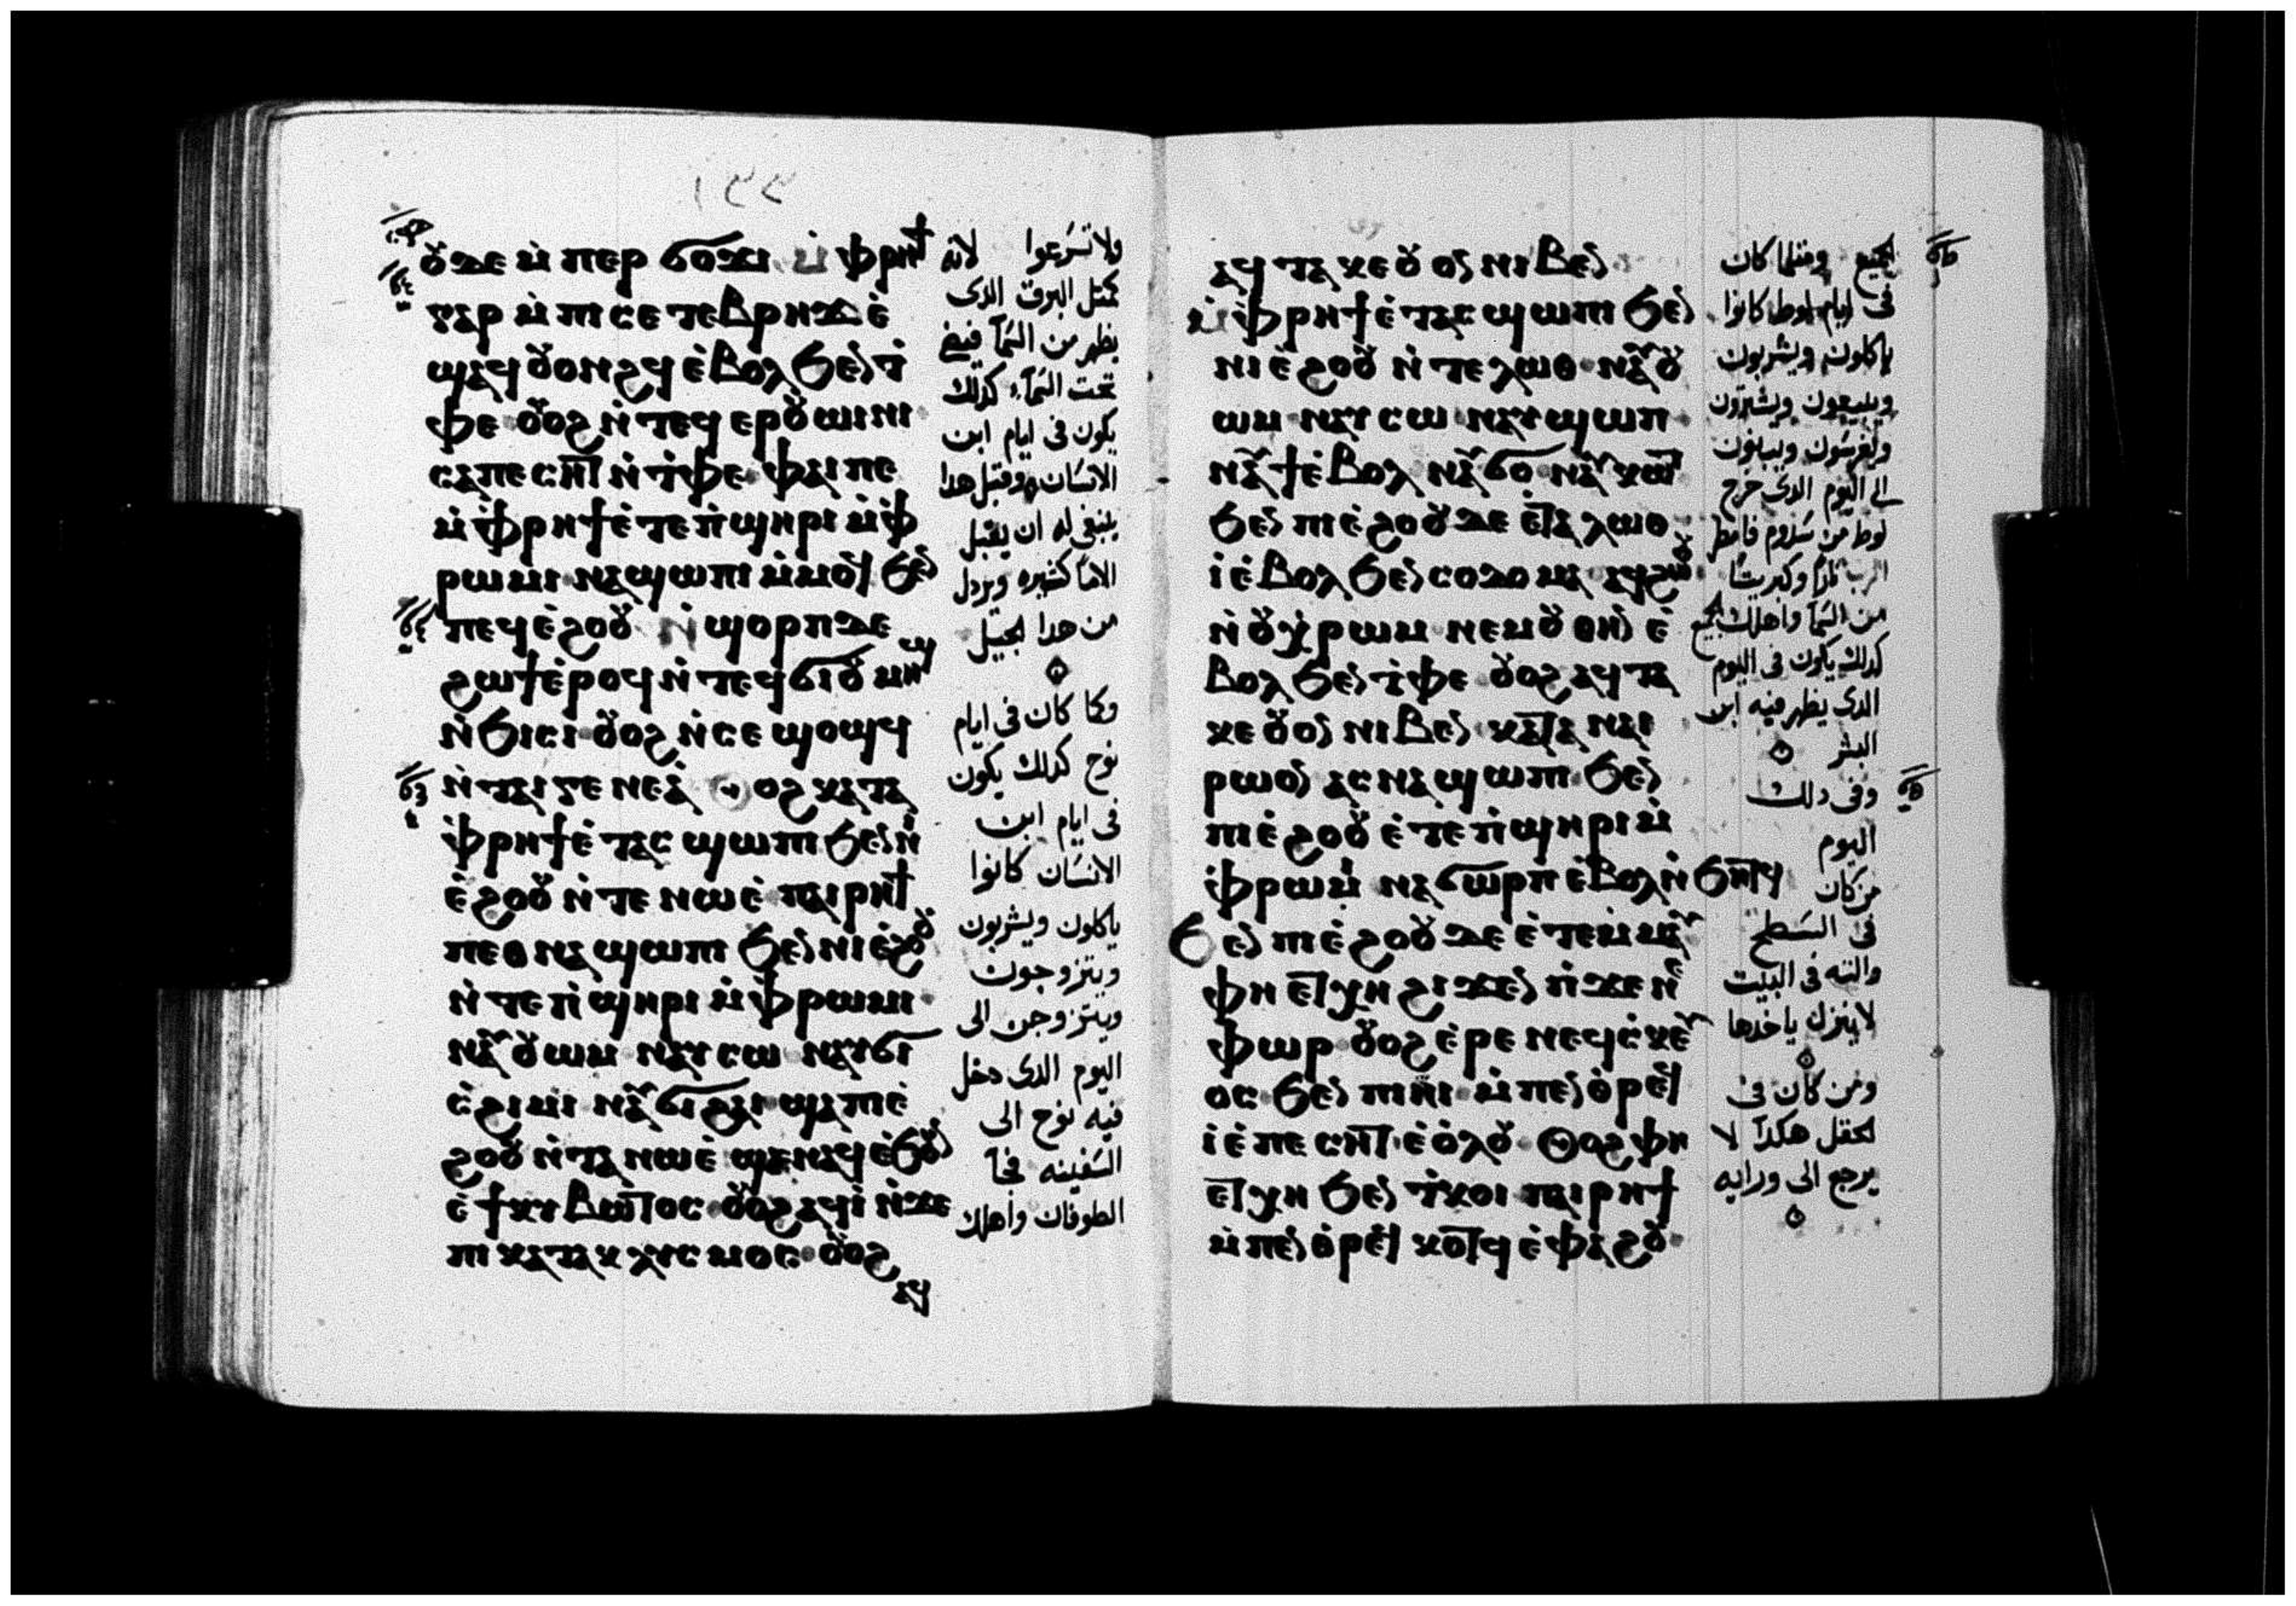 ⲟⲩⲇⲉ ⲙ̇ⲡⲉⲣ ϭⲟϫⲓ ⲙ̇ⲫⲣⲏϯ
ⲅⲁⲣ ⲙ̇ⲡⲓⲥⲉⲧⲉⲃⲣⲏϫ ⲉ̇
ϣⲁϥ ⲟⲩⲟⲛϩϥ ⲉ̇ⲃⲟⲗ ϧⲉⲛ ⲧ̇
ⲫⲉ ⲟⲩⲟϩ ⲛ̇ⲧⲉϥ ⲉⲣⲟⲩⲱⲓⲛⲓ
ⲥⲁⲡⲉⲥⲏⲧ ⲛ̇ⲧ̇ⲫⲉ ⲫⲁⲓ ⲡⲉ
ⲙ̇ⲫ̇ⲣⲏϯ ⲉ̇ⲧⲉ ⲡ̇ϣⲏⲣⲓ ⲙ̇ⲫ̇
ⲣⲱⲙⲓ ⲛⲁϣⲱⲡⲓ ⲙ̇ⲙⲟϥ ϧⲉⲛ
ⲡⲉϥⲉ̇ϩⲟⲟⲩ ⲛ̇ϣⲟⲣⲡ ⲇⲉ
ϩⲱϯ ⲉ̇ⲣⲟϥ ⲛ̇ⲧⲉϥϭⲓ ⲟⲩⲙⲏϣ
ⲛ̇ϧⲓⲥⲓ ⲟⲩⲟϩ ⲛ̇ⲥⲉ ϣⲟϣϥ
ⲛ̇ⲧⲁⲓⲅⲉⲛⲉⲁ̇ ⲟⲩⲟϩ ⲕⲁⲧⲁ
ⲫ̇ⲣⲏϯ ⲉ̇ⲧⲁⲥ ϣⲱⲡⲓ ϧⲉⲛ ⲛⲓ
ⲉ̇ϩⲟⲟⲩ ⲛ̇ⲧⲉ ⲛⲱⲉ̇ ⲡⲁⲓⲣⲏϯ
ⲡⲉⲑⲛⲁϣⲱⲡⲓ ϧⲉⲛ ⲛⲓⲉ̇ϩⲟⲟⲩ
ⲛ̇ⲧⲉ ⲡ̇ϣⲏⲣⲓ ⲙ̇ⲫ̇ⲣⲱⲙⲓ
ⲛⲁⲩ ⲟⲩⲱⲙ ⲛⲁⲩⲥⲱ ⲛⲁⲩϭⲓ
ⲥ̇ϩⲓⲙⲓ ⲛⲁⲩϭⲓϩⲁⲓ ϣⲁ ⲡⲓⲉ̇
ϩⲟⲟⲩ ⲛ̇ⲧⲁ ⲛⲱⲉ̇ ϣⲉⲛⲁϥ ⲉ̇ϧⲟⲩⲛ
ⲉ̇ϯⲕⲩⲃⲱⲧⲟⲥ ⲟⲩⲟϩ ⲁϥⲓ̇ ⲛ̇ϫⲉ
ⲡⲓ ⲕⲁⲧⲁⲕⲗⲩⲥⲙⲟⲥ ⲟⲩⲟϩ
ⲁϥ
ولا تسرعوا لانه
كمثل البرق الدى
يظهر من السمآ فيضى
تحت السمآء كدلك
يكون فى ايام ابن
الانسان وقبل هدا
ينبغى له ان يقبل
الاما كثيره ويردل
من هدا الجيل
وكما كان فى ايام
نوح كدلك يكون
فى ايام ابن
الانسان كانوا
ياكلون ويشربون
ويتزوجون
ويتزوجن الى
اليوم الدى دخل
فيه نوح الى
السفينه فجآ
الطوفان واهلك
ⲁϥⲧⲁⲕⲉ ⲟⲩⲟⲛ ⲛⲓⲃⲉⲛ
ⲙ̇ⲫ̇ⲣⲏϯ ⲉ̇ⲧⲁⲥ ϣⲱⲡⲓ ϧⲉⲛ
ⲛⲓⲉ̇ϩⲟⲟⲩ ⲛ̇ⲧⲉ ⲗⲱⲑ ⲛⲁⲩ ⲟⲩ
ⲱⲙ ⲛⲁⲩⲥⲱ ⲛⲁⲩϣⲱⲡ
ⲛⲁⲩϯ ⲉ̇ⲃⲟⲗ ⲛⲁⲩϭⲟ ⲛⲁⲩⲕⲱⲧ
ϧⲉⲛ ⲡⲓⲉ̇ϩⲟⲟⲩ ⲇⲉ ⲉ̇ⲧⲁ ⲗⲱⲑ
ⲓ̇ ⲉ̇ⲃⲟⲗ ϧⲉⲛ ⲥⲟⲇⲟⲙⲁ ⲁϥϩⲱⲟⲩ
ⲛ̇ⲟⲩⲭ̇ⲣⲱⲙ ⲛⲉⲙ ⲟⲩⲑⲏⲛ ⲉ̇
ⲃⲟⲗ ϧⲉⲛ ⲧ̇ⲫⲉ ⲟⲩⲟϩ ⲁϥⲧⲁ
ⲕⲉ ⲟⲩⲟⲛ ⲛⲓⲃⲉⲛ ⲕⲁⲧⲁ ⲛⲁⲓ
ⲣⲱⲟⲛ ⲁⲥⲛⲁϣⲱⲡⲓ ϧⲉⲛ
ⲡⲓⲉ̇ϩⲟⲟⲩ ⲉ̇ⲧⲉ ⲡ̇ϣⲏⲣⲓ ⲙ̇
ⲫ̇ⲣⲱⲙⲓ ⲛⲁϭⲱⲣⲡ ⲉ̇ⲃⲟⲗ ⲛ̇ϧⲏⲧϥ
ϧⲉⲛ ⲡⲓⲉ̇ϩⲟⲟⲩ ⲇⲉ ⲉ̇ⲧⲉⲙ̇ⲙⲁⲩ
ⲫⲏ ⲉⲧⲭⲏ ϩⲓϫⲉⲛ ⲡ̇ϫⲉⲛⲉ
ⲫⲱⲣ ⲟⲩⲟϩ ⲉ̇ⲣⲉ ⲛⲉϥⲥ̇ⲕⲉⲩ
ⲟⲥ ϧⲉⲛ ⲡⲓⲏⲓ ⲙ̇ⲡⲉⲛⲑ̇ⲣⲉϥ
ⲓ̇ ⲉ̇ⲡⲉⲥⲏⲧ ⲉ̇ⲟ̇ⲗⲟⲩ ⲟⲩⲟϩ ⲫⲏ
ⲉⲧⲭⲏ ϧⲉⲛ ⲧ̇ⲕⲟⲓ ⲡⲁⲓⲣⲏϯ
ⲙ̇ⲡⲉⲛⲑ̇ⲣⲉϥ ⲕⲟⲧϥ ⲉ̇ⲫⲁϩⲟⲩ
الجميع ومثلما كان
فى ايام لوط كانوا
ياكلون ويشربون
ويبيعون ويشترون
ويغرسون ويبنون
الى اليوم الدى خرج
لوط من سدوم فامطر
الرب نارا وكبريتا
من السمآ واهلك الجميع
كدلك يكون فى اليوم
الدى يظهر فيه ابن
البشر
وفى دلك
اليوم
من كان
فى السطح
والته فى البيت
لاينزل ياخدها
ومن كان فى
الحقل هكدآ لا
يرجع الى ورايه